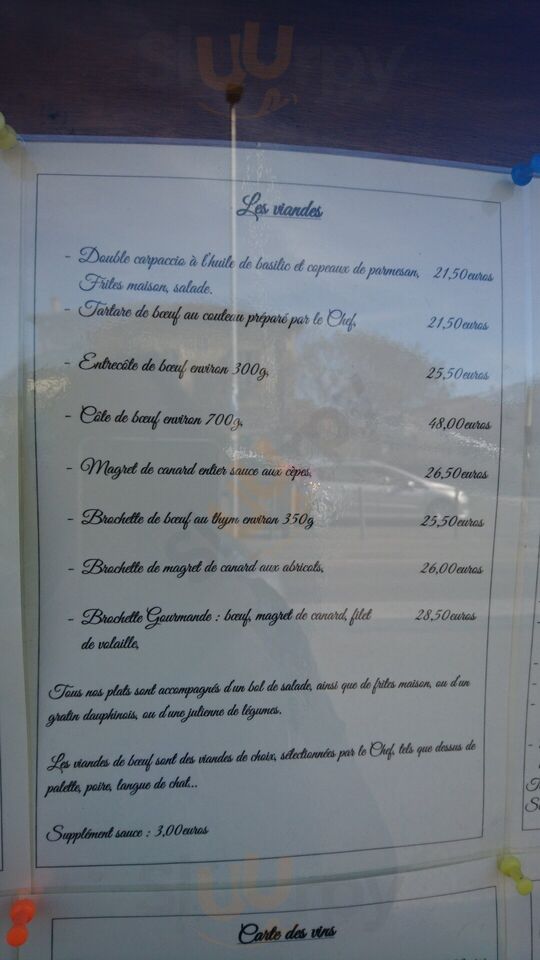 sluurpy
Les viandes
- Double carpaccio à l'huile de basilic et copeaux de parmesan, 21,50euros
Frites maison, salade.
- Tartare de bœuf au couteau préparé par le Chef, 21,50euros
- Entrecôte de bœuf environ 300g, 25,50euros
- Côte de bœuf environ 700g, 48,00euros
- Magret de canard entier sauce aux cèpes, 26,50euros
- Brochette de bœuf au thym environ 350g 25,50euros
- Brochette de magret de canard aux abricots, 26,00euros
- Brochette Gourmande : bœuf, magret de canard, filet 28,50euros
de volaille,
Tous nos plats sont accompagnés d'un bol de salade, ainsi que de frites maison, ou d'un
gratin dauphinois, ou d'une julienne de légumes.
Les viandes de bœuf sont des viandes de choix, sélectionnées par le Chef, tels que dessus de
palette, poire, langue de chat...
Supplément sauce : 3,00euros
Carte des vins
sluurpy